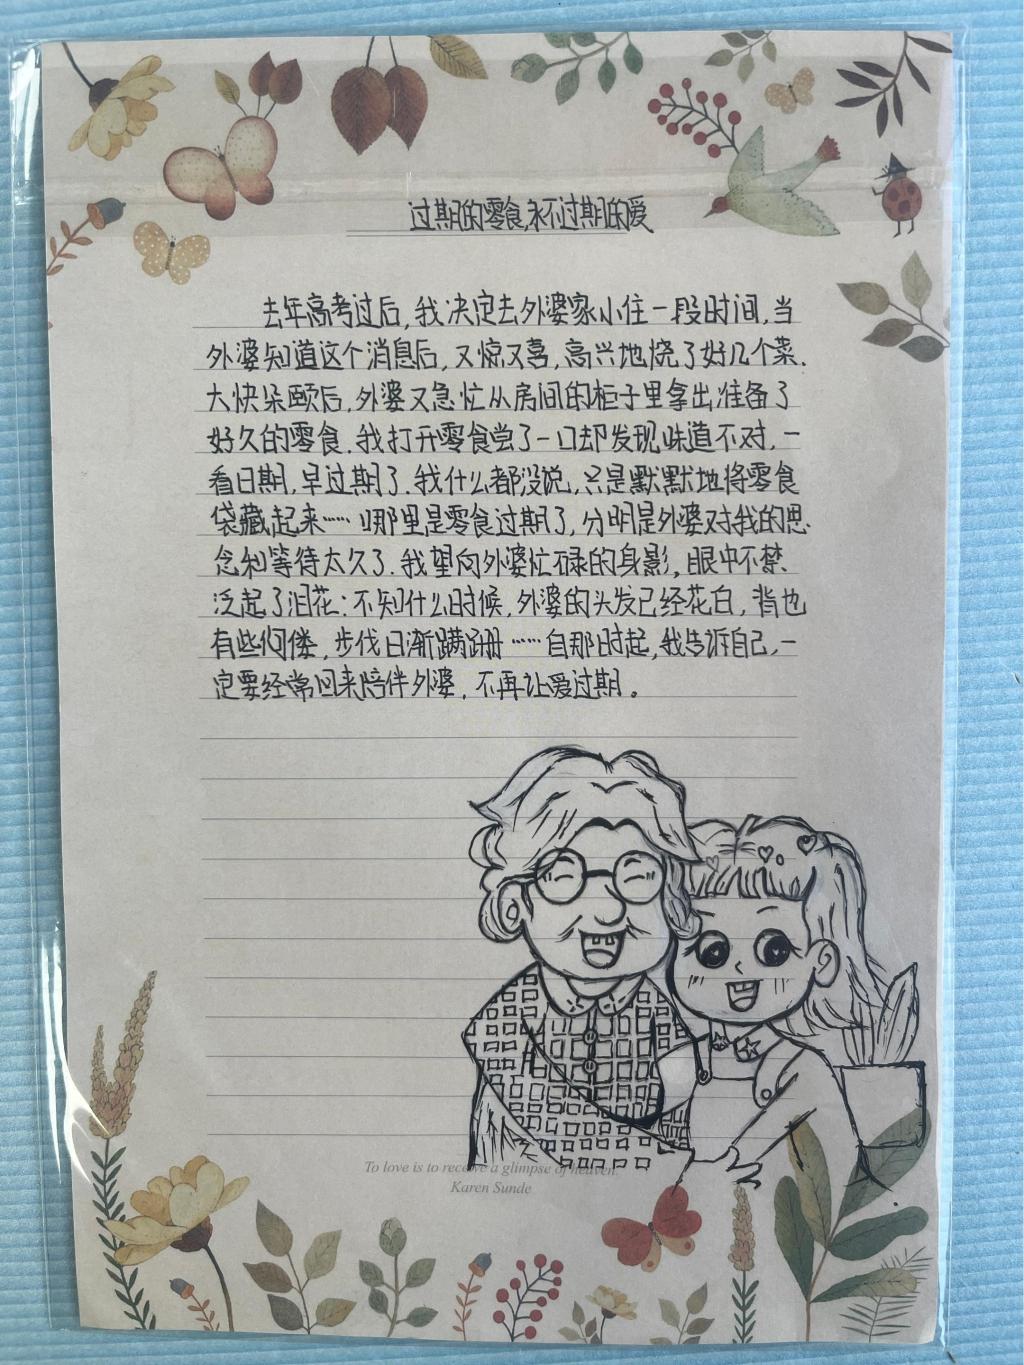 过期的零食,永不过期的爱
去年高考过后,我决定去外婆家小住一段时间,当
外婆知道这个消息后,又惊又喜,高兴地烧了好几个菜.
大快朵颐后,外婆又急忙从房间的柜子里拿出准备了
好久的零食.我打开零食尝了一口却发现味道不对,一
看日期,早过期了.我什么都没说,只是默默地将零食
袋藏起来……哪里是零食过期了,分明是外婆对我的思
念和等待太久了.我望向外婆忙碌的身影,眼中不禁
泛起了泪花:不知什么时候,外婆的头发已经花白,背也
有些佝偻,步伐日渐蹒跚……自那时起,我告诉自己,一
定要经常回来陪伴外婆,不再让爱过期。
To love is to receive a glimpse of heaven.
Karen Sunde